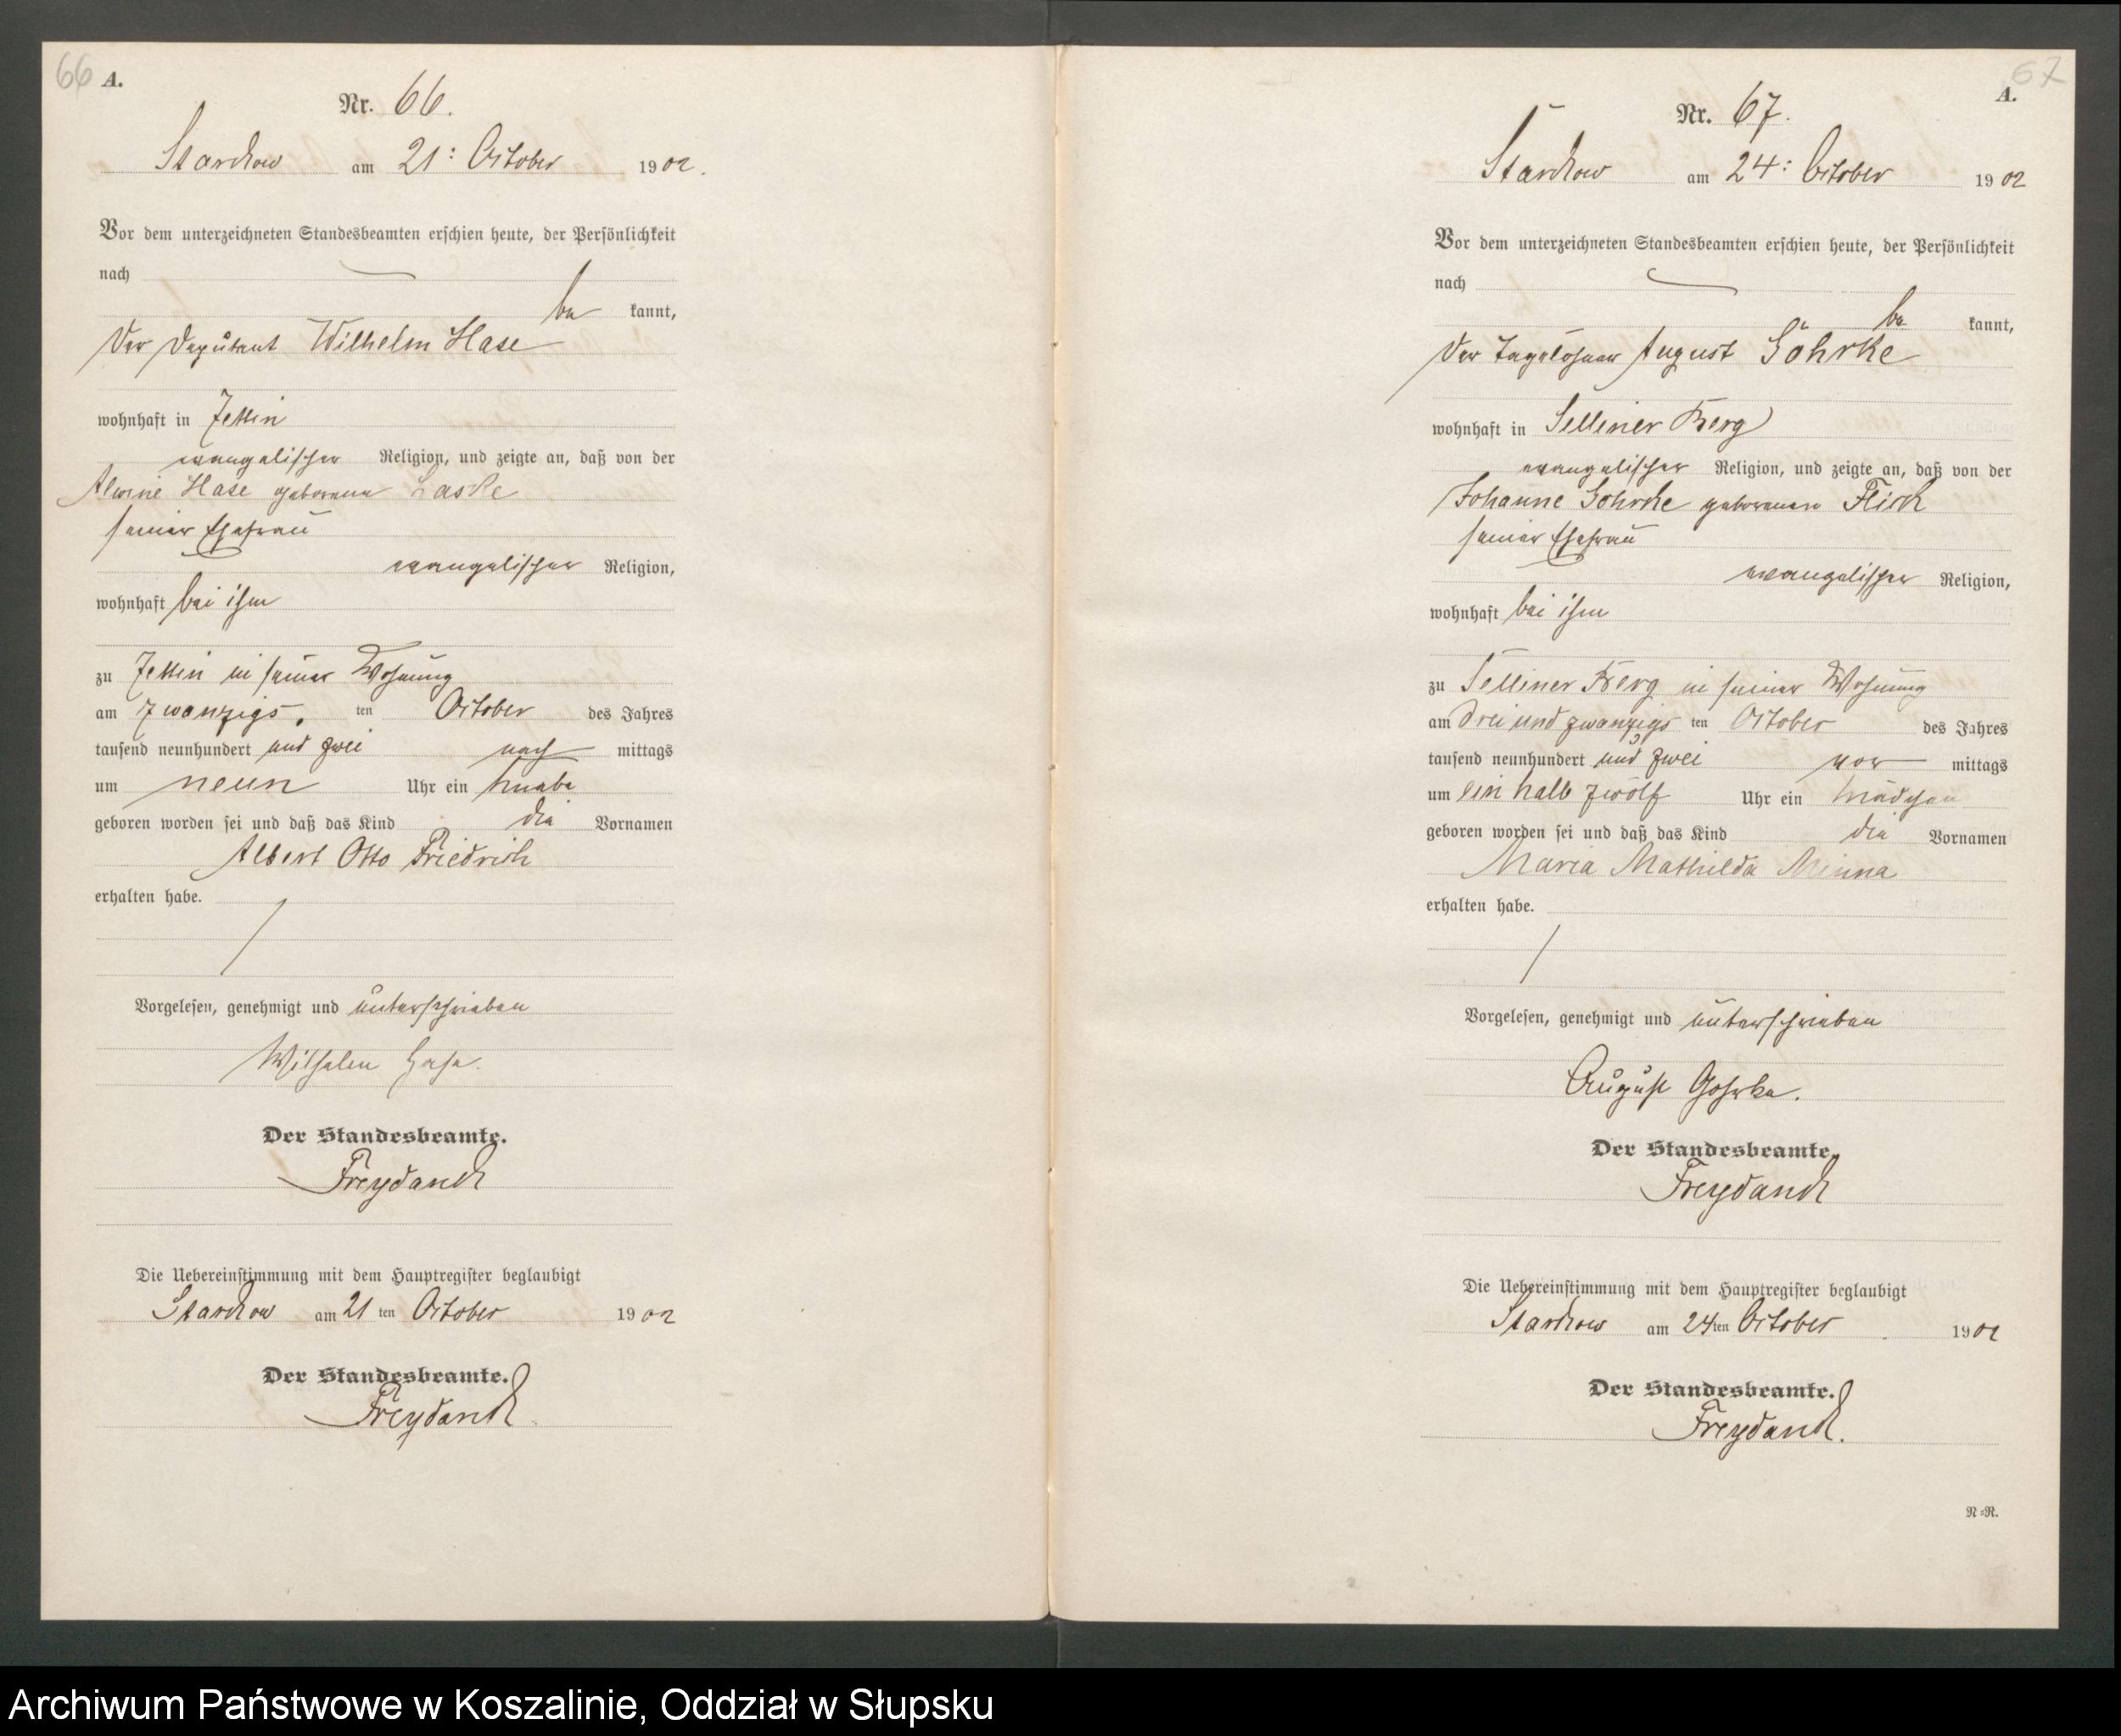 66 A.
Nr. 66.
Starckow am 21: October 1902.
Vor dem unterzeichneten Standesbeamten erschien heute, der Persönlichkeit
nach
be kannt,
der Deputant Wilhelm Hase
wohnhaft in Zettin
evangelischer Religion, und zeigte an, daß von der
Alwine Hase geborene Laske
seiner Ehefrau
evangelischer Religion,
wohnhaft bei ihm
zu Zettin in seiner Wohnung
am zwanzigs. ten October des Jahres
tausend neunhundert und zwei nach mittags
um neun Uhr ein Knabe
geboren worden sei und daß das Kind die Vornamen
Albert Otto Friedrich
erhalten habe.
Vorgelesen, genehmigt und unterschrieben
Wilhelm Hase.
Der Standesbeamte.
Freydanck
Die Uebereinstimmung mit dem Hauptregister beglaubigt
Starckow am 21 ten October 1902
Der Standesbeamte.
Freydanck.
67
A.
Nr. 67.
Starckow am 24: October 1902
Vor dem unterzeichneten Standesbeamten erschien heute, der Persönlichkeit
nach
be kannt,
der Tagelöhner August Göhrke
wohnhaft in Selliner Berg
evangelischer Religion, und zeigte an, daß von der
Johanne Göhrke geborenen Flick
seiner Ehefrau
evangelischer Religion,
wohnhaft bei ihm
zu Selliner Berg in seiner Wohnung
am drei und zwanzigs ten October des Jahres
tausend neunhundert und zwei vor mittags
um ein halb zwölf Uhr ein Mädchen
geboren worden sei und daß das Kind die Vornamen
Maria Mathilda Minna
erhalten habe.
Vorgelesen, genehmigt und unterschrieben
August Gohrke.
Der Standesbeamte.
Freydanck
Die Uebereinstimmung mit dem Hauptregister beglaubigt
Starckow am 24ten October 1902
Der Standesbeamte.
Freydanck.
N=R.
Archiwum Państwowe w Koszalinie, Oddział w Słupsku